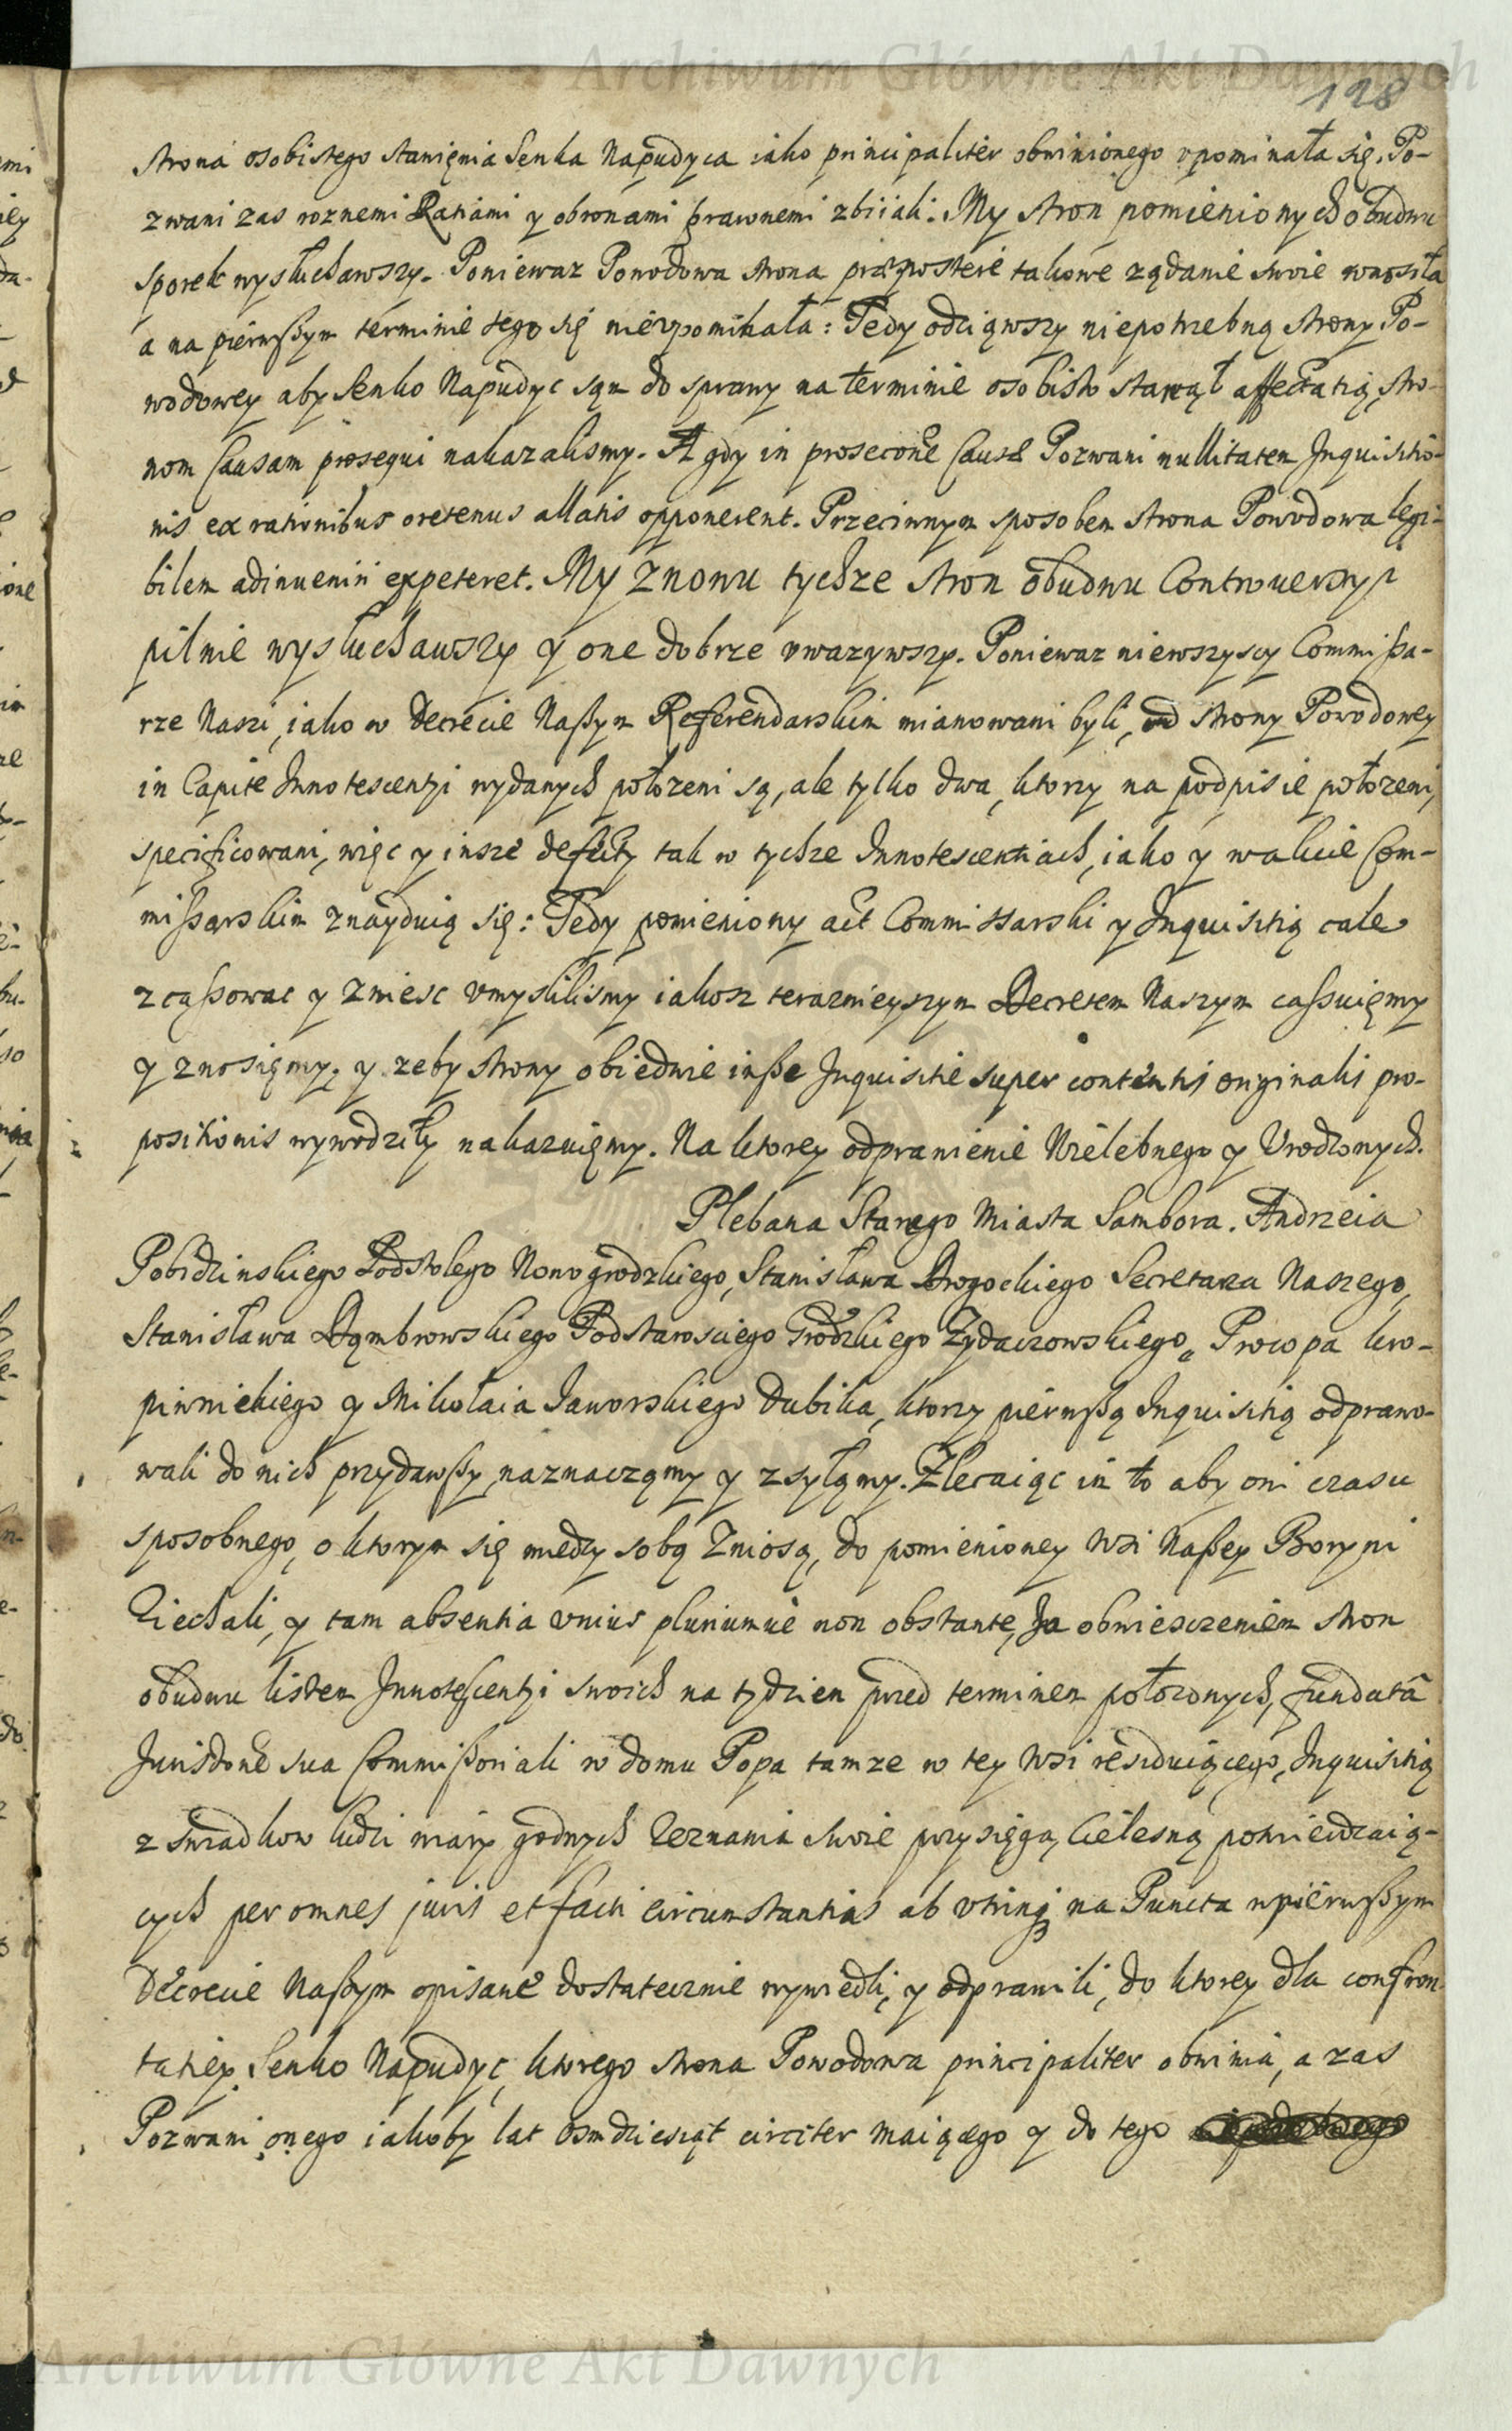 Archiwum Główne Akt Dawnych
128
strona osobistego stanięnia Senka Napudyca iako principaliter obwinionego vpominała się. Po-
zwani zas roznemi Ratiami y obronami prawnemi zbiiali. My stron pomienionych obudwu
sporek wysłuchawszy. Poniewaz Powodowa strona præpostere takowe ządanie swoie wnosiła
a na pierwszym terminie tego się nievpominała: Tedy odciąwszy niepotrzebną strony Po-
wodowey aby Senko Napudyc sąm do sprawy na terminie osobisto stawął affectatią, stro-
nom Causam prosequi nakazalismy. A gdy in prosecone Causæ Pozwani nullitatem Inquisitio-
nis ex rationibus oretenus allatis opponerent. Przeciwnym sposobem strona Powodowa legi-
bilem adinueniri expeteret. My znowu tychze stron obudwu Controuersyi
pilnie wysłuchawszy y one dobrze vwazywszy. Poniewaz niewszyscy Commissa-
rze Naszi, iako w Decrecie Naszym Referendarskim mianowani byli, od strony Powodowey
in Capite Innotescentyi wydanych połozeni są, ale tylko dwa, ktorzy na podpisie połozeni,
specificowani, więc y insze defekty tak w tychze Innotescentiach, iako y wakcie Com-
missarskim znayduią się: Tedy pomieniony act Commissarski y Inquisitią cale
zcassowac y zniesc vmyslilismy iakosz terazneyszym Decretem Naszym cassuięmy
y znosięmy. y zeby strony obiedwie insze Inquisitie super contentis originalis pro-
positionis wywodziły nakazuięmy. Na ktorey odprawienie Wielebnego y Vrodzonych.
Plebana Starego Miasta Sambora. Andrzeia
Pobidzinskiego Podstolego Nowogrodzkiego, Stanisława Drogockiego Secretarza Naszego,
Stanisława Dąmbrowskiego Podstarosciego Grodzkiego Zydaczowskiego, Procopa kro-
piwnickiego y Mikołaia Jaworskiego Dubika, ktorzy pierwszą Inquisitią odprawo-
wali do nich przydawszy, naznacząmy y zsyłąmy. Zlecaiąc im to aby oni czasu
sposobnego, o ktorym się miedzy sobą zniosą, do pomienioney Wsi Naszey Boryni
ziechali, y tam absentia vnius pluriumue non obstante, za obwiesczeniem stron
obudwu listem Innotescentyi swoich na tydzien przed terminem połozonych, fundatâ
Jurisdone sua Commissoriali w domu Popa tamze w tey Wsi residuiącego, Inquisitią
z swiadkow ludzi wiary godnych zeznania swoie przysięgą Cielesną potwierdzaią-
cych per omnes juris et facti circumstantias ab vtrinq na Puncta wpierwszym
Decrecie Naszym opisane dostatecznie wywiedli, y odprawili, do ktorey dla confron
tatiey Senko Napudyc, ktorego strona Powodowa principaliter obwinia, a zas
Pozwani onego iakoby lat osmdziesiąt circiter maiącego y do tego
Archiwum Główne Akt Dawnych